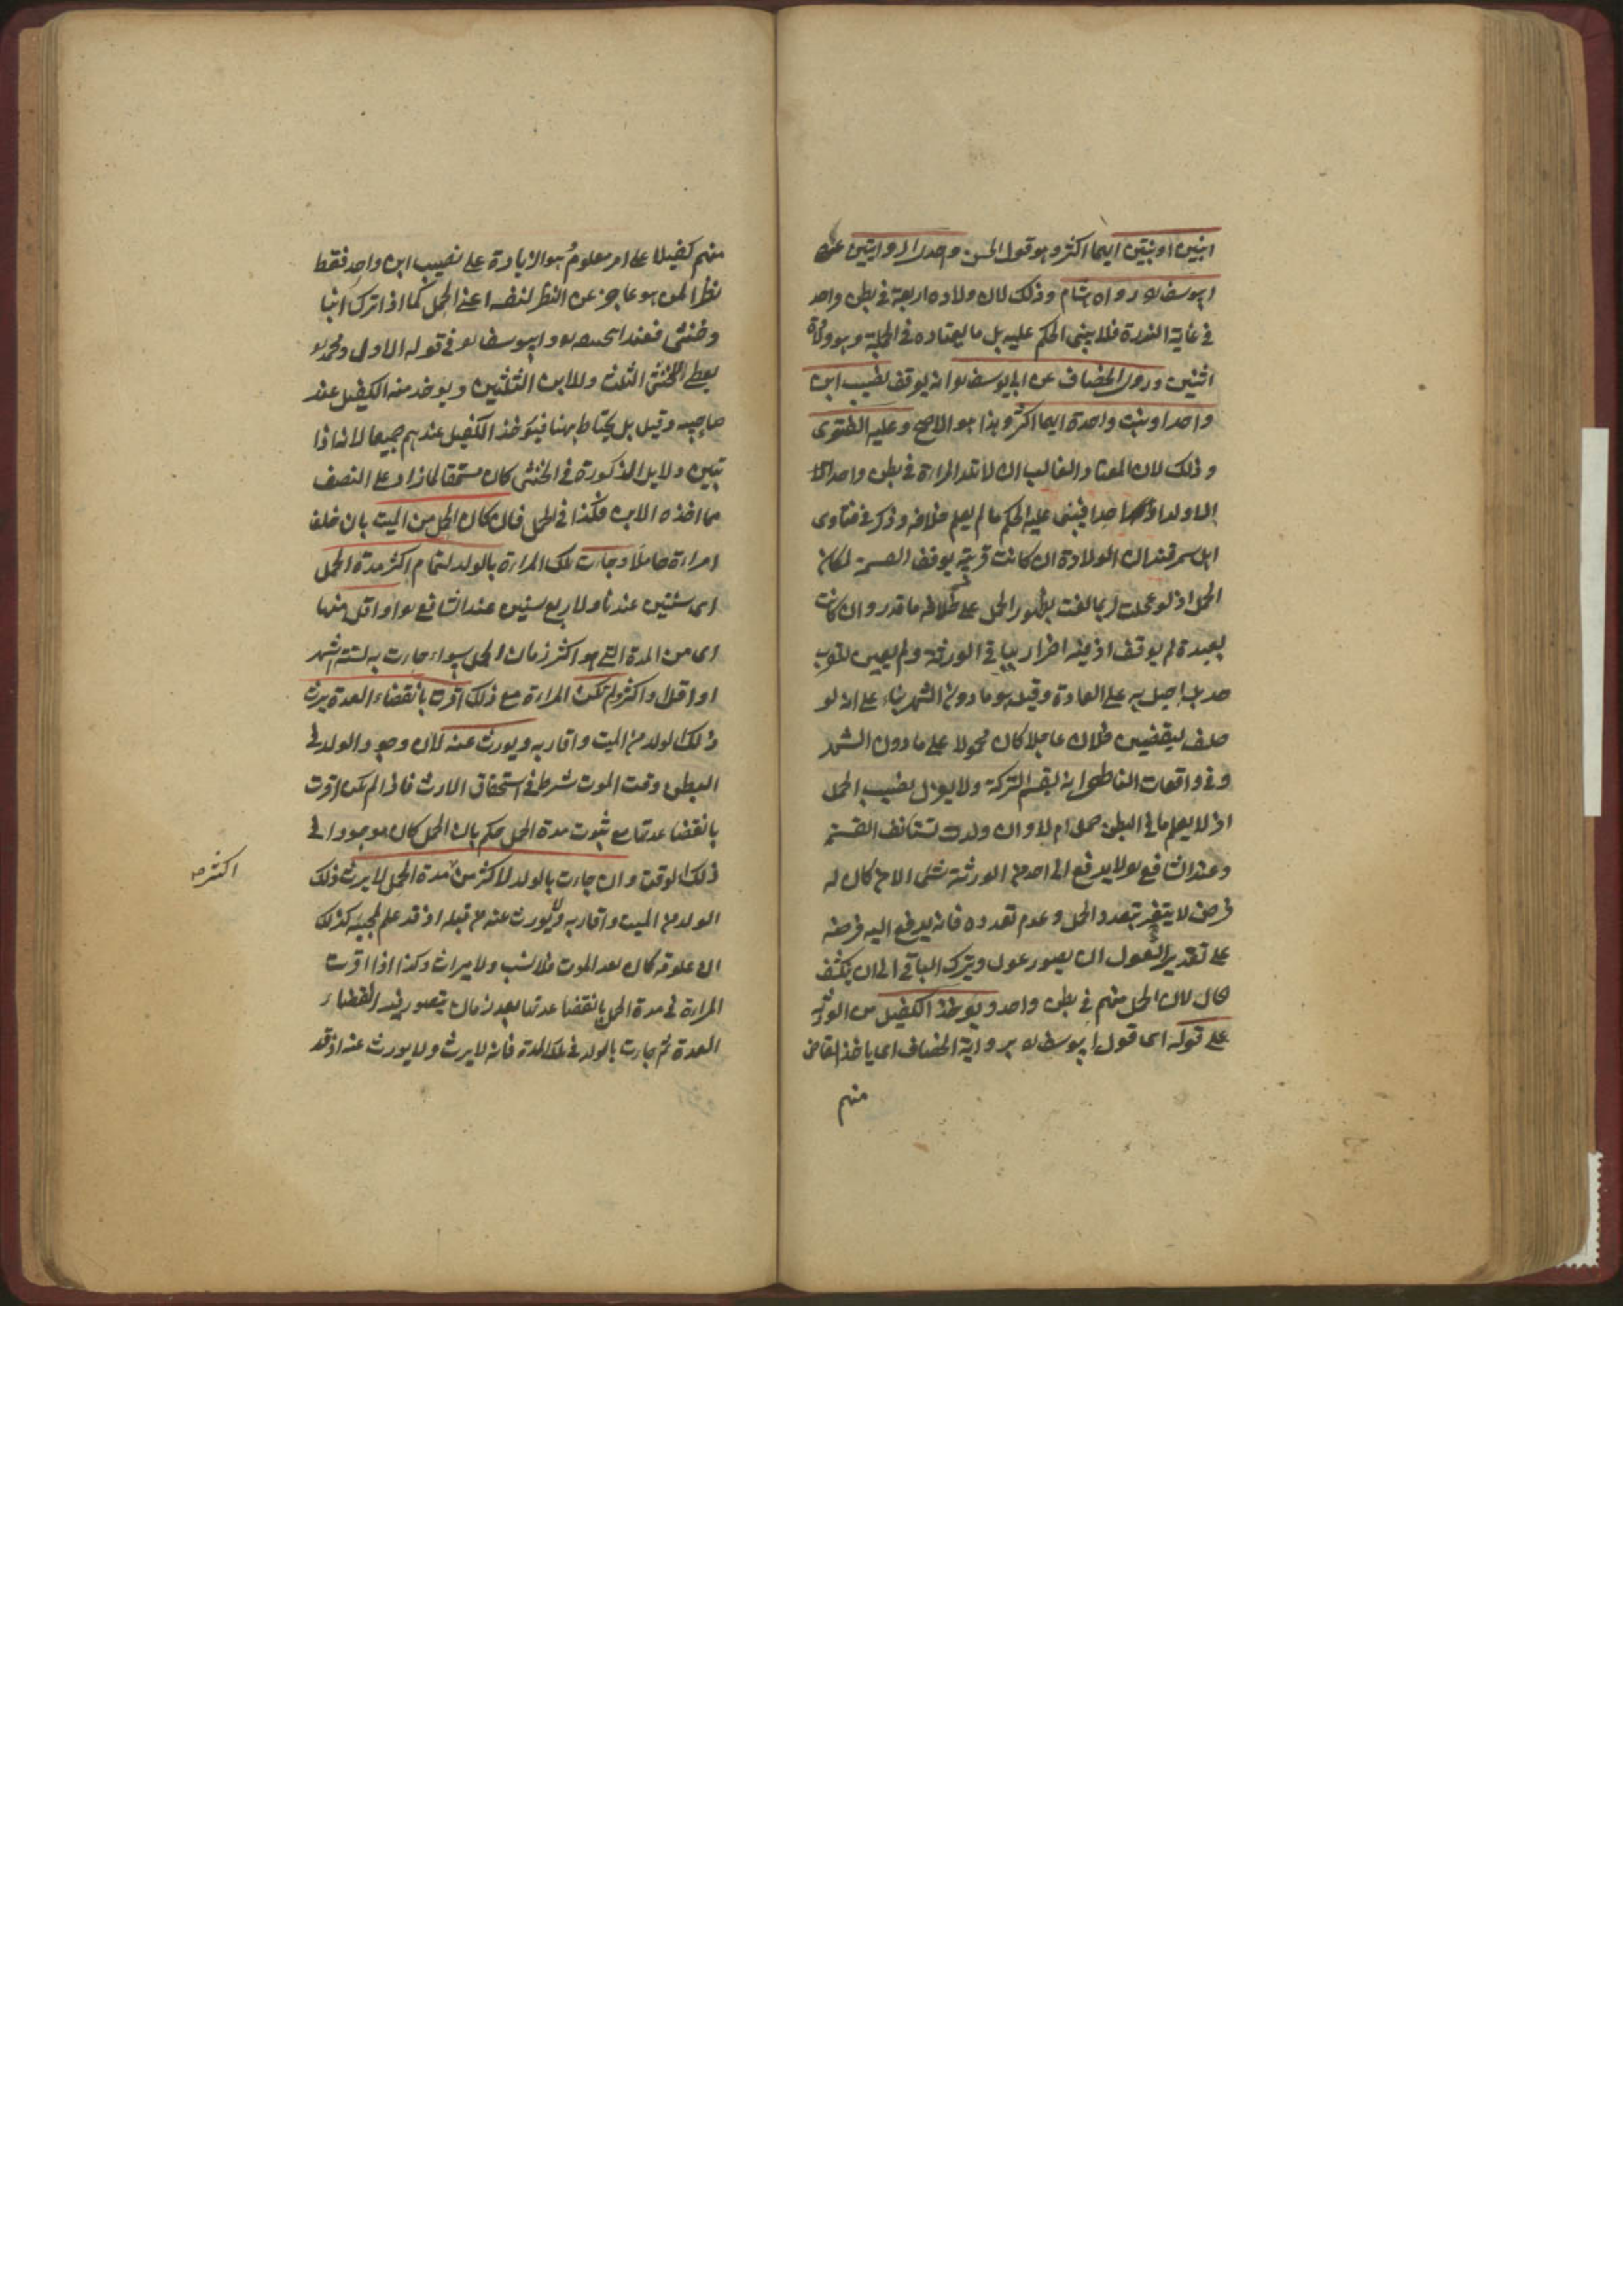 ابنين او بنتين ايهما اكثر وهو قول الحسن واحدى الروايتين عن
ابيوسف رواه هشام وذلك لان ولاده اربعة في بطن واحد
في غاية الندرة فلا يبنى الحكم عليه بل ما يعتاده في الجملة وهو ولادة
اثنين وروى الخصاف عن ابي يوسف انه يوقف نصيب ابن
واحد او بنت واحدة ايهما اكثر وهذا هو الاصح وعليه الفتوى
وذلك لان المعتاد الغالب ان لا تلد المراءة في بطن واحد
الا ولدا واحدا فيبنى عليه الحكم ما لم يعلم خلافه وذكر في فتاوى
اهل سمرقند ان الولادة ان كانت قريبة يوقف القسمة لمكان
الحمل اذ لو عجلت لربما لغت بظهور الحمل على خلاف ما قدر وان كانت
بعيدة لم يوقف اذ فيه اضرار بباقي الورثة ولم يعين للقرب
حد بل احيل به على العادة وقيل هو ما دون الشهر بناء على انه لو
حلف ليقضين فلان عاجلا كان محمولا على ما دون الشهر
وفي واقعات الناطفى انه يقسم التركة ولا يعزل نصيب الحمل
اذ لا يعلم ما في البطن حمل ام لا وان ولدت تستانف القسمة
وعند الشافع لا يدفع الى احد من الورثة شئ الا من كان له
فرض لا يتغير بتعدد الحمل وعدم تعدده فانه يدفع اليه فرضه
على تقدير العول ان يصور عول ويترك الباقي الى ان ينكشف
الحال لان الحمل منهم في بطن واحد ويوخذ الكفيل من الورثة
على قوله اى قول ابيوسف برواية الخصاف اى ياخذ القاضى
منهم
منهم كفيلا على امر معلوم هو الزيادة على نصيب ابن واحد فقط
نظرا لمن هو عاجز عن النظر لنفسه اعني الحمل كما اذا ترك ابنا
وخنثى فعند ابي حنيفه وابيوسف في قوله الاول ومحمد
يعطى الخنثى الثلث وللابن الثلثين ويوخذ منه الكفيل عند
صاحبيه وقيل بل يحتاط هنا فيوخذ الكفيل عندهم جميعا لانه اذا
تبين دلايل الذكورة في الخنثى كان مستحقا لما زاد على النصف
مما اخذه الابن فكذا في الحمل فان كان الحمل من الميت بان خلف
امراءة حاملا وجاءت تلك المراءة بالولد لتمام اكثر مدة الحمل
اى سنتين عندنا ولاربع سنين عند الشافع او اقل منها
اى من المدة التي هو اكثر زمان الحمل سواء جاءت به لستة اشهر
او اقل او اكثر ولم تكن المراءة مع ذلك اقرت بانقضاء العدة يرث
ذلك الولد من الميت واقاربه ويورث عنه لان وجود الولد في
البطن وقت الموت شرط في استحقاق الارث فاذا لم تكن اقرت
بانقضا عدتها مع ثبوت مدة الحمل حكم بان الحمل كان موجودا في
ذلك الوقت وان جاءت بالولد لاكثر من مدة الحمل لا يرث ذلك
اكثر صح
الولد من الميت واقاربه ولا يورث عنه من قبله اذ قد علم بمجيئه كذلك
ان علوقه كان بعد الموت فلا نسب ولا ميراث وكذا اذا اقرت
المراءة في مدة الحمل بانقضا عدتها بعد زمان يتصور فيه انقضاء
العدة ثم جاءت بالولد في تلك المدة فانه لا يرث ولا يورث عنه اذ قد